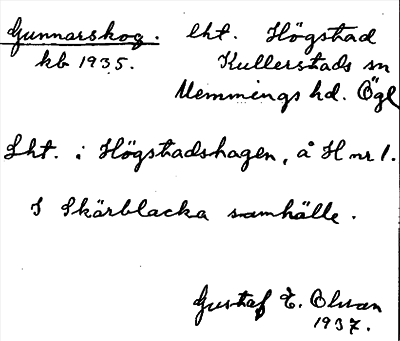 Gunnarskog. lht. Högstad
kb 1935. Kullerstads sn
Memmings hd. Ögl
Lht. i Högstadshagen, å H nr 1.
I Skärblacka samhälle.
Gustaf E. Olsson
1937.